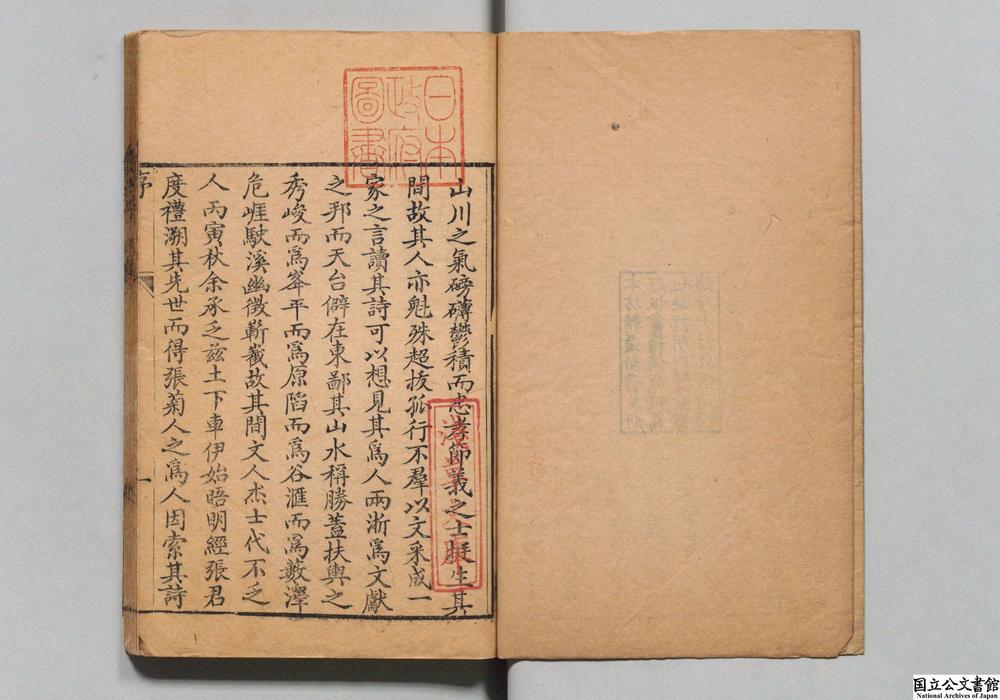 山川之氣磅礴鬱積而忠孝節義之士挺生其
間故其人亦魁殊超拔孤行不羣以文采成一
家之言讀其詩可以想見其為人兩浙為文獻
之邦而天台僻在東鄙其山水稱勝蓋扶輿之
秀峻而為峯平而為原陷而為谷滙而為藪澤
危崕馱溪幽微蘄截故其間文人杰士代不乏
人丙寅秋余承乏兹土下車伊始晤明經張君
度禮溯其先世而得張菊人之為人因索其詩
序
一
日本
政府
圖書
国立公文書館
National Archives of Japan